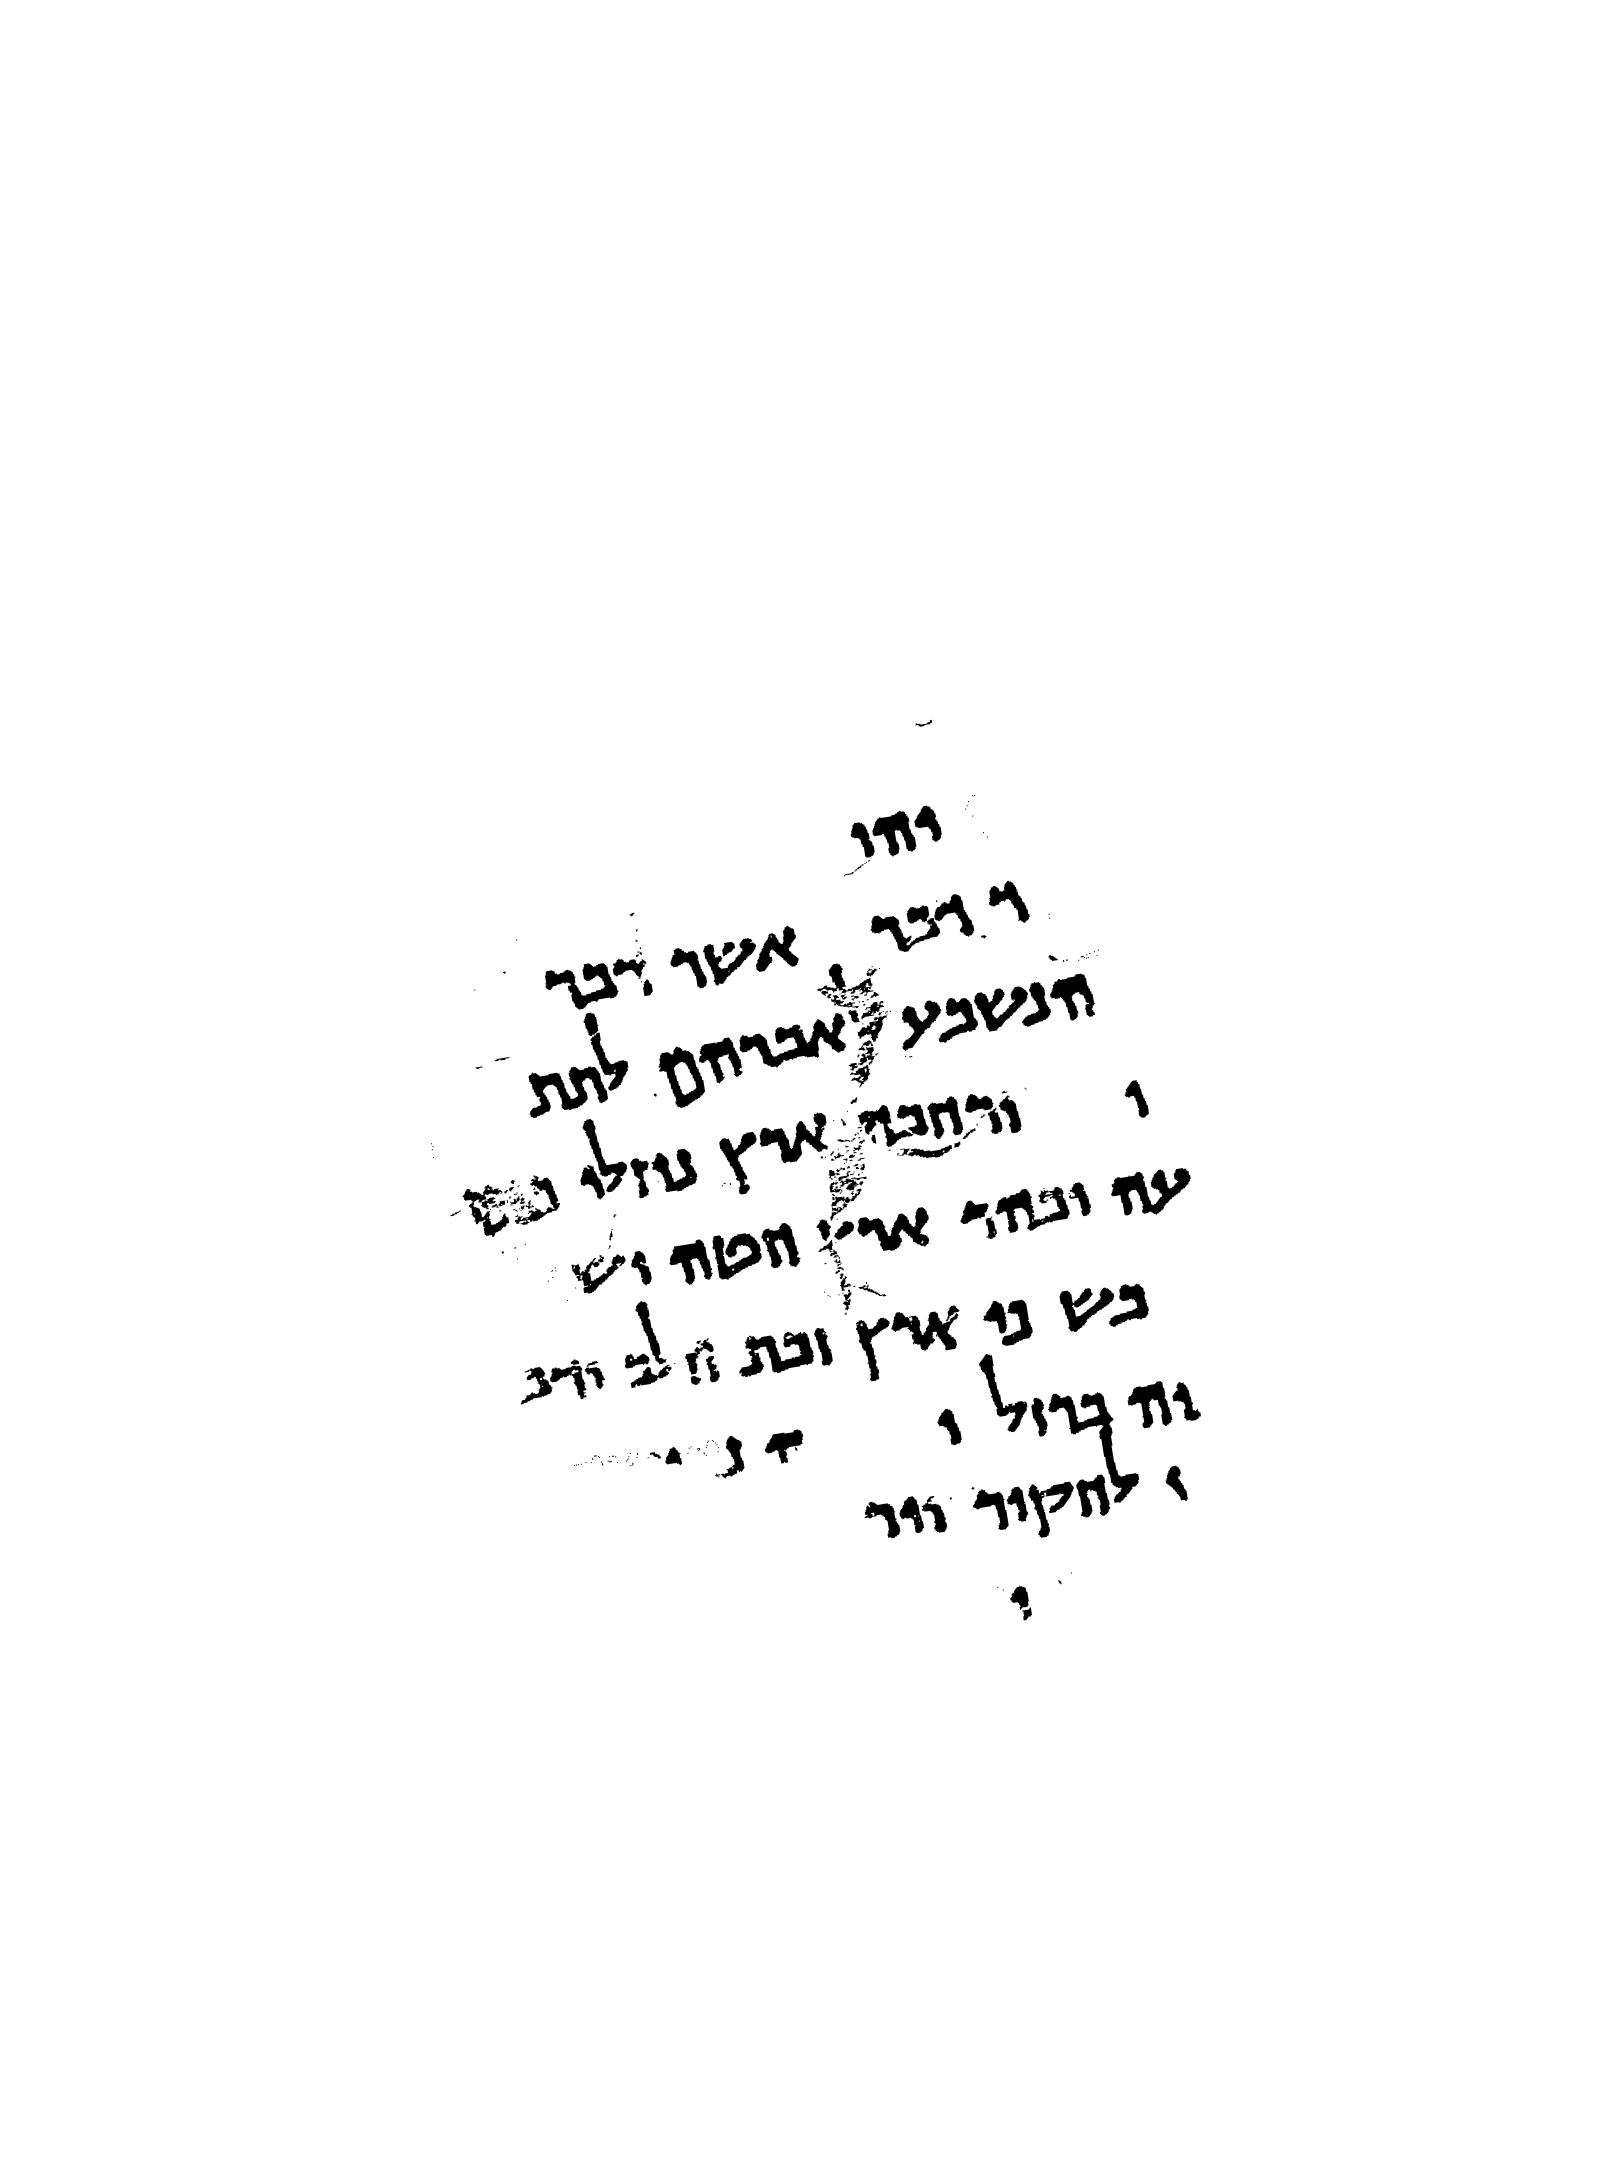 והו
ד דבר אשר דבר
הנשבע לאברהם לתת
ו ורחבה ארץ נוזלי
עה ובהר ארץ חטה וש
בש ני ארץ זבת חלב ודב
יה ברזל ו
לחקור ודר